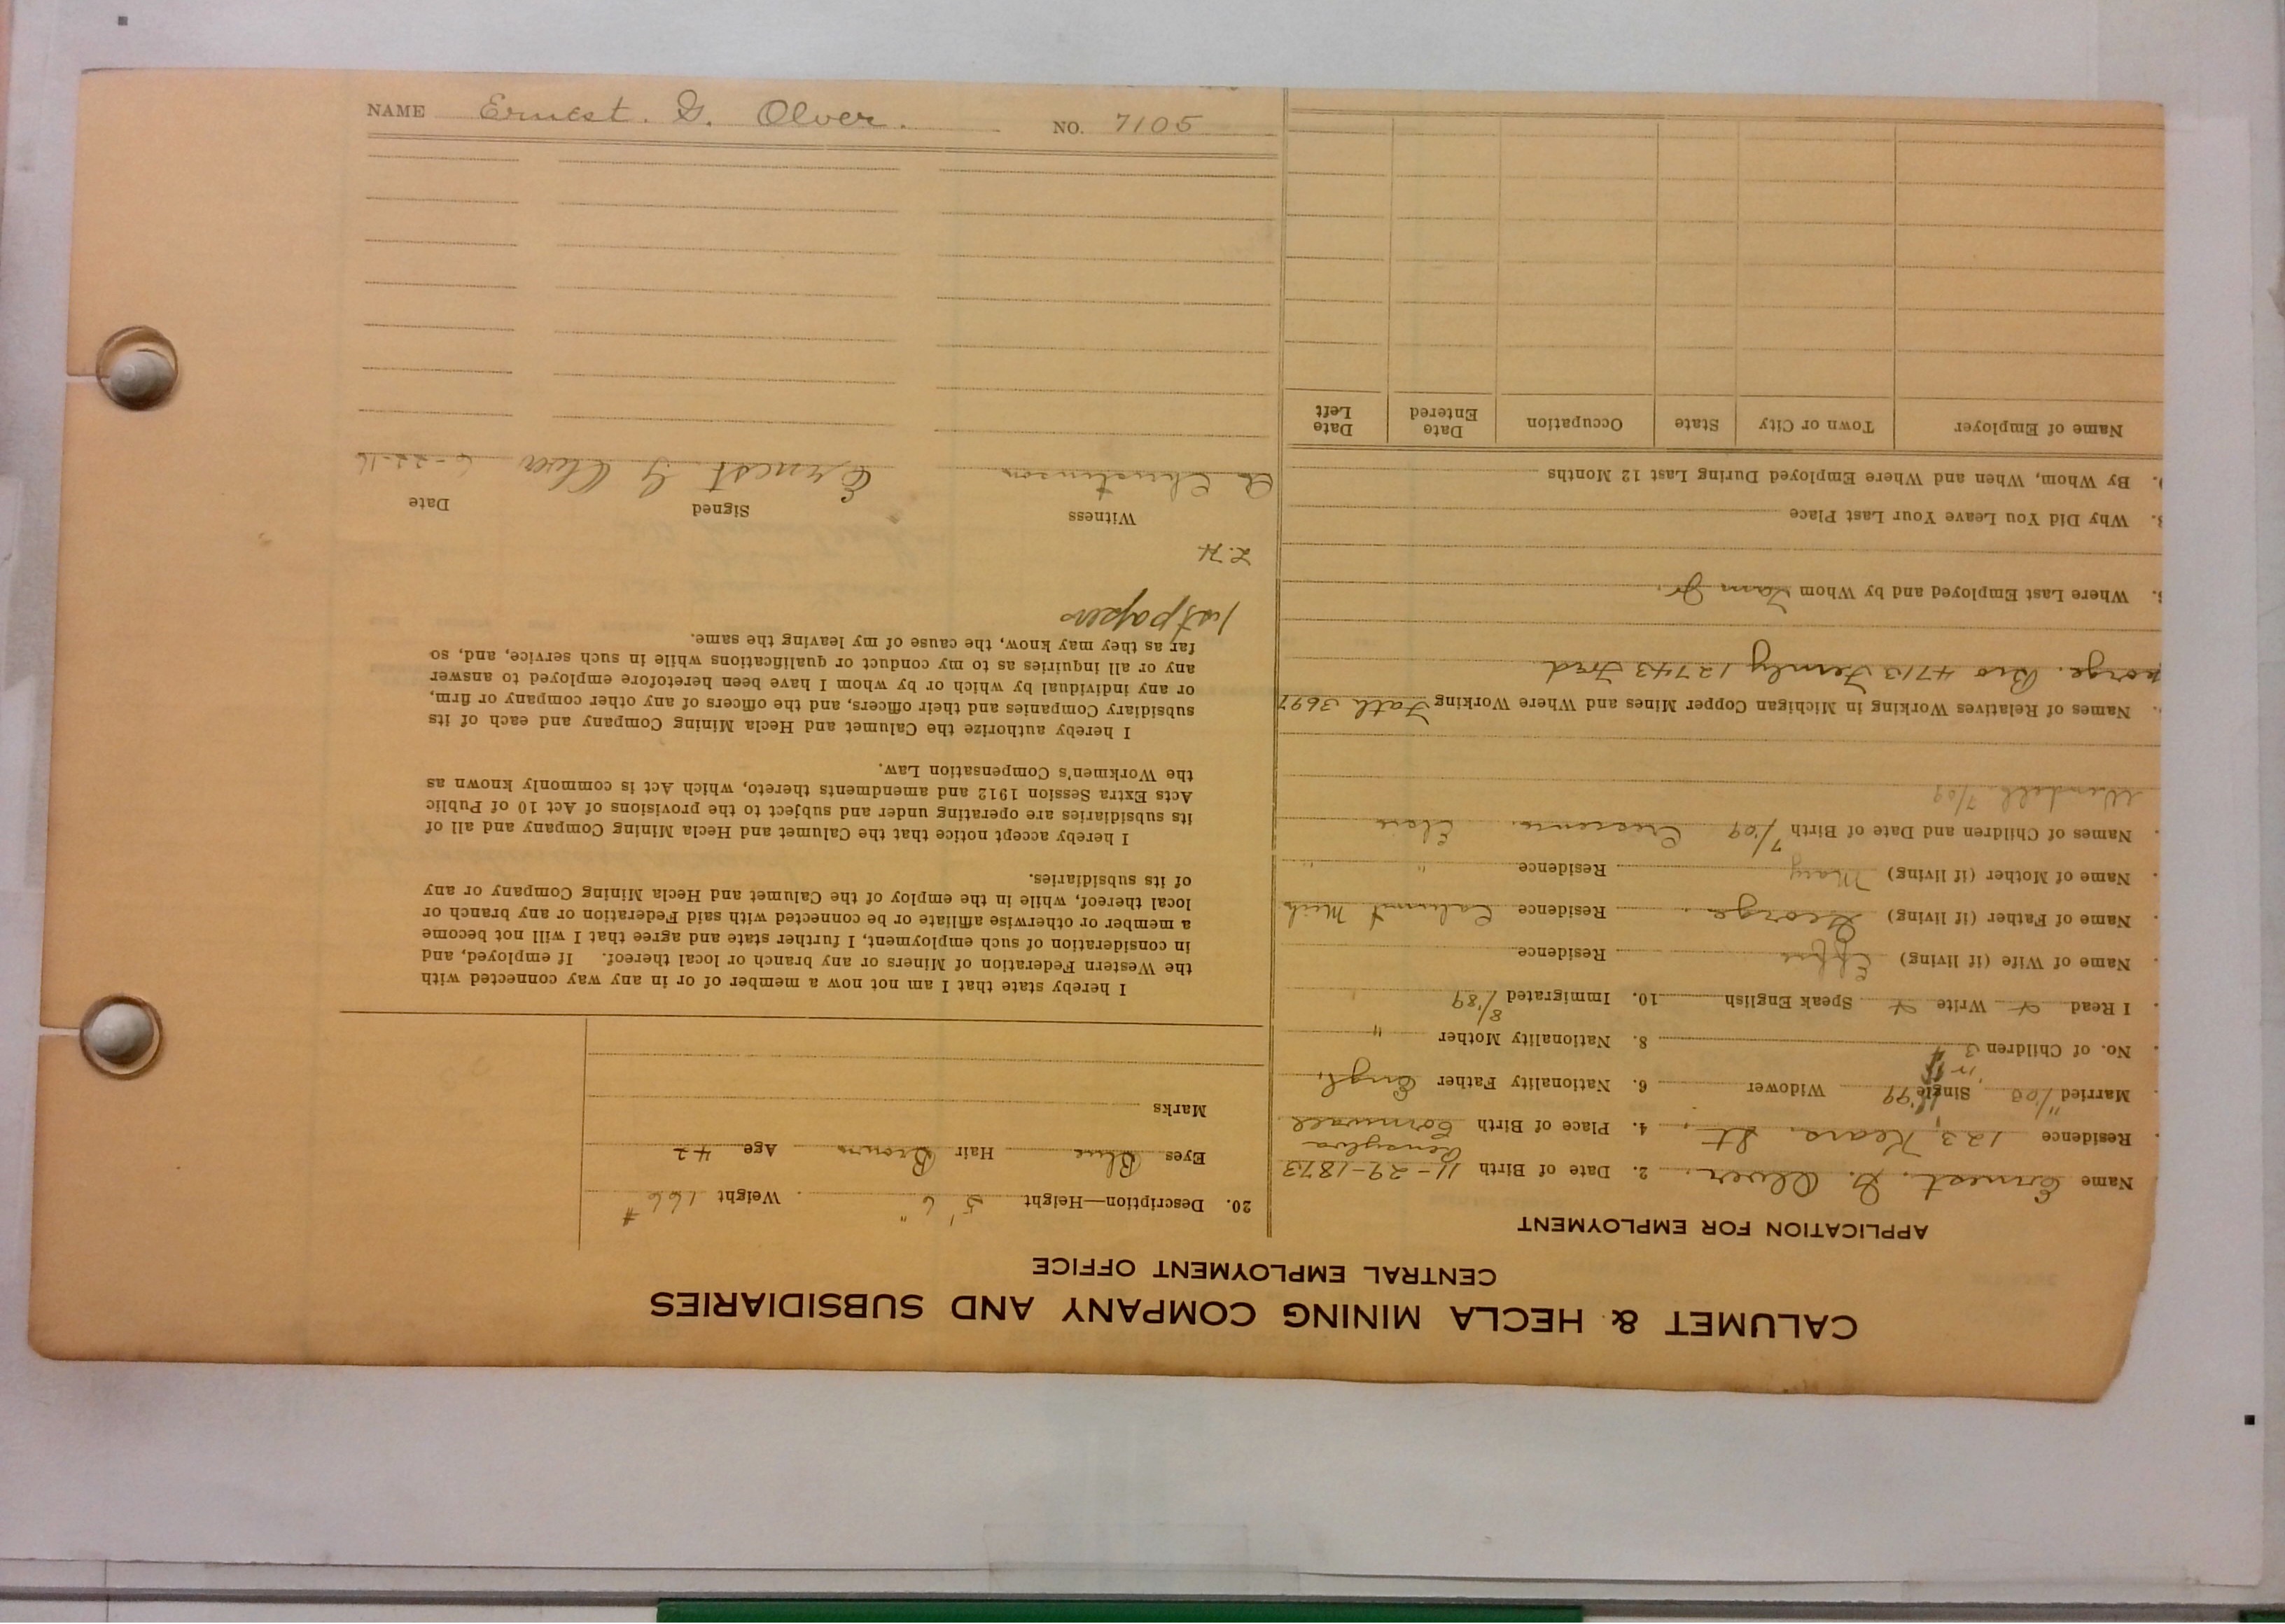 NAME Ernest. G. Olver. NO. 7105
CALUMET & HECLA MINING COMPANY AND SUBSIDIARIES
CENTRAL EMPLOYMENT OFFICE
APPLICATION FOR EMPLOYMENT
Name Ernest. G. Olver. 2. Date of Birth 11-29-1873
Residence 123, Kears. St. 4. Place of Birth Cornwall
Married Single Widower 6. Nationality Father Engl.
No. of Children 3 8. Nationality Mother "
I Read Write Speak English 10. Immigrated 8/89
Name of Wife (if living) Residence
Name of Father (if living) George. Residence Calumet Mich
Name of Mother (if living) Mary Residence " "
Names of Children and Date of Birth 7/09
Wendell 7/09
Names of Relatives Working in Michigan Copper Mines and Where Working Fath 3697
Bro 4713 12743
Where Last Employed and by Whom
Why Did You Leave Your Last Place
By Whom, When and Where Employed During Last 12 Months
Name of Employer Town or City State Occupation Date Entered Date Left
20. Description—Height 5' 6" Weight 166 #
Eyes Blue Hair Brown Age 42
Marks
I hereby state that I am not now a member of or in any way connected with
the Western Federation of Miners or any branch or local thereof. If employed, and
in consideration of such employment, I further state and agree that I will not become
a member or otherwise affiliate or be connected with said Federation or any branch or
local thereof, while in the employ of the Calumet and Hecla Mining Company or any
of its subsidiaries.
I hereby accept notice that the Calumet and Hecla Mining Company and all of
its subsidiaries are operating under and subject to the provisions of Act 10 of Public
Acts Extra Session 1912 and amendments thereto, which Act is commonly known as
the Workmen's Compensation Law.
I hereby authorize the Calumet and Hecla Mining Company and each of its
subsidiary Companies and their officers, and the officers of any other company or firm,
or any individual by which or by whom I have been heretofore employed to answer
any or all inquiries as to my conduct or qualifications while in such service, and, so
far as they may know, the cause of my leaving the same.
1st papers
Z.H
Witness Signed Date
Ernest G Olver 6-22-16